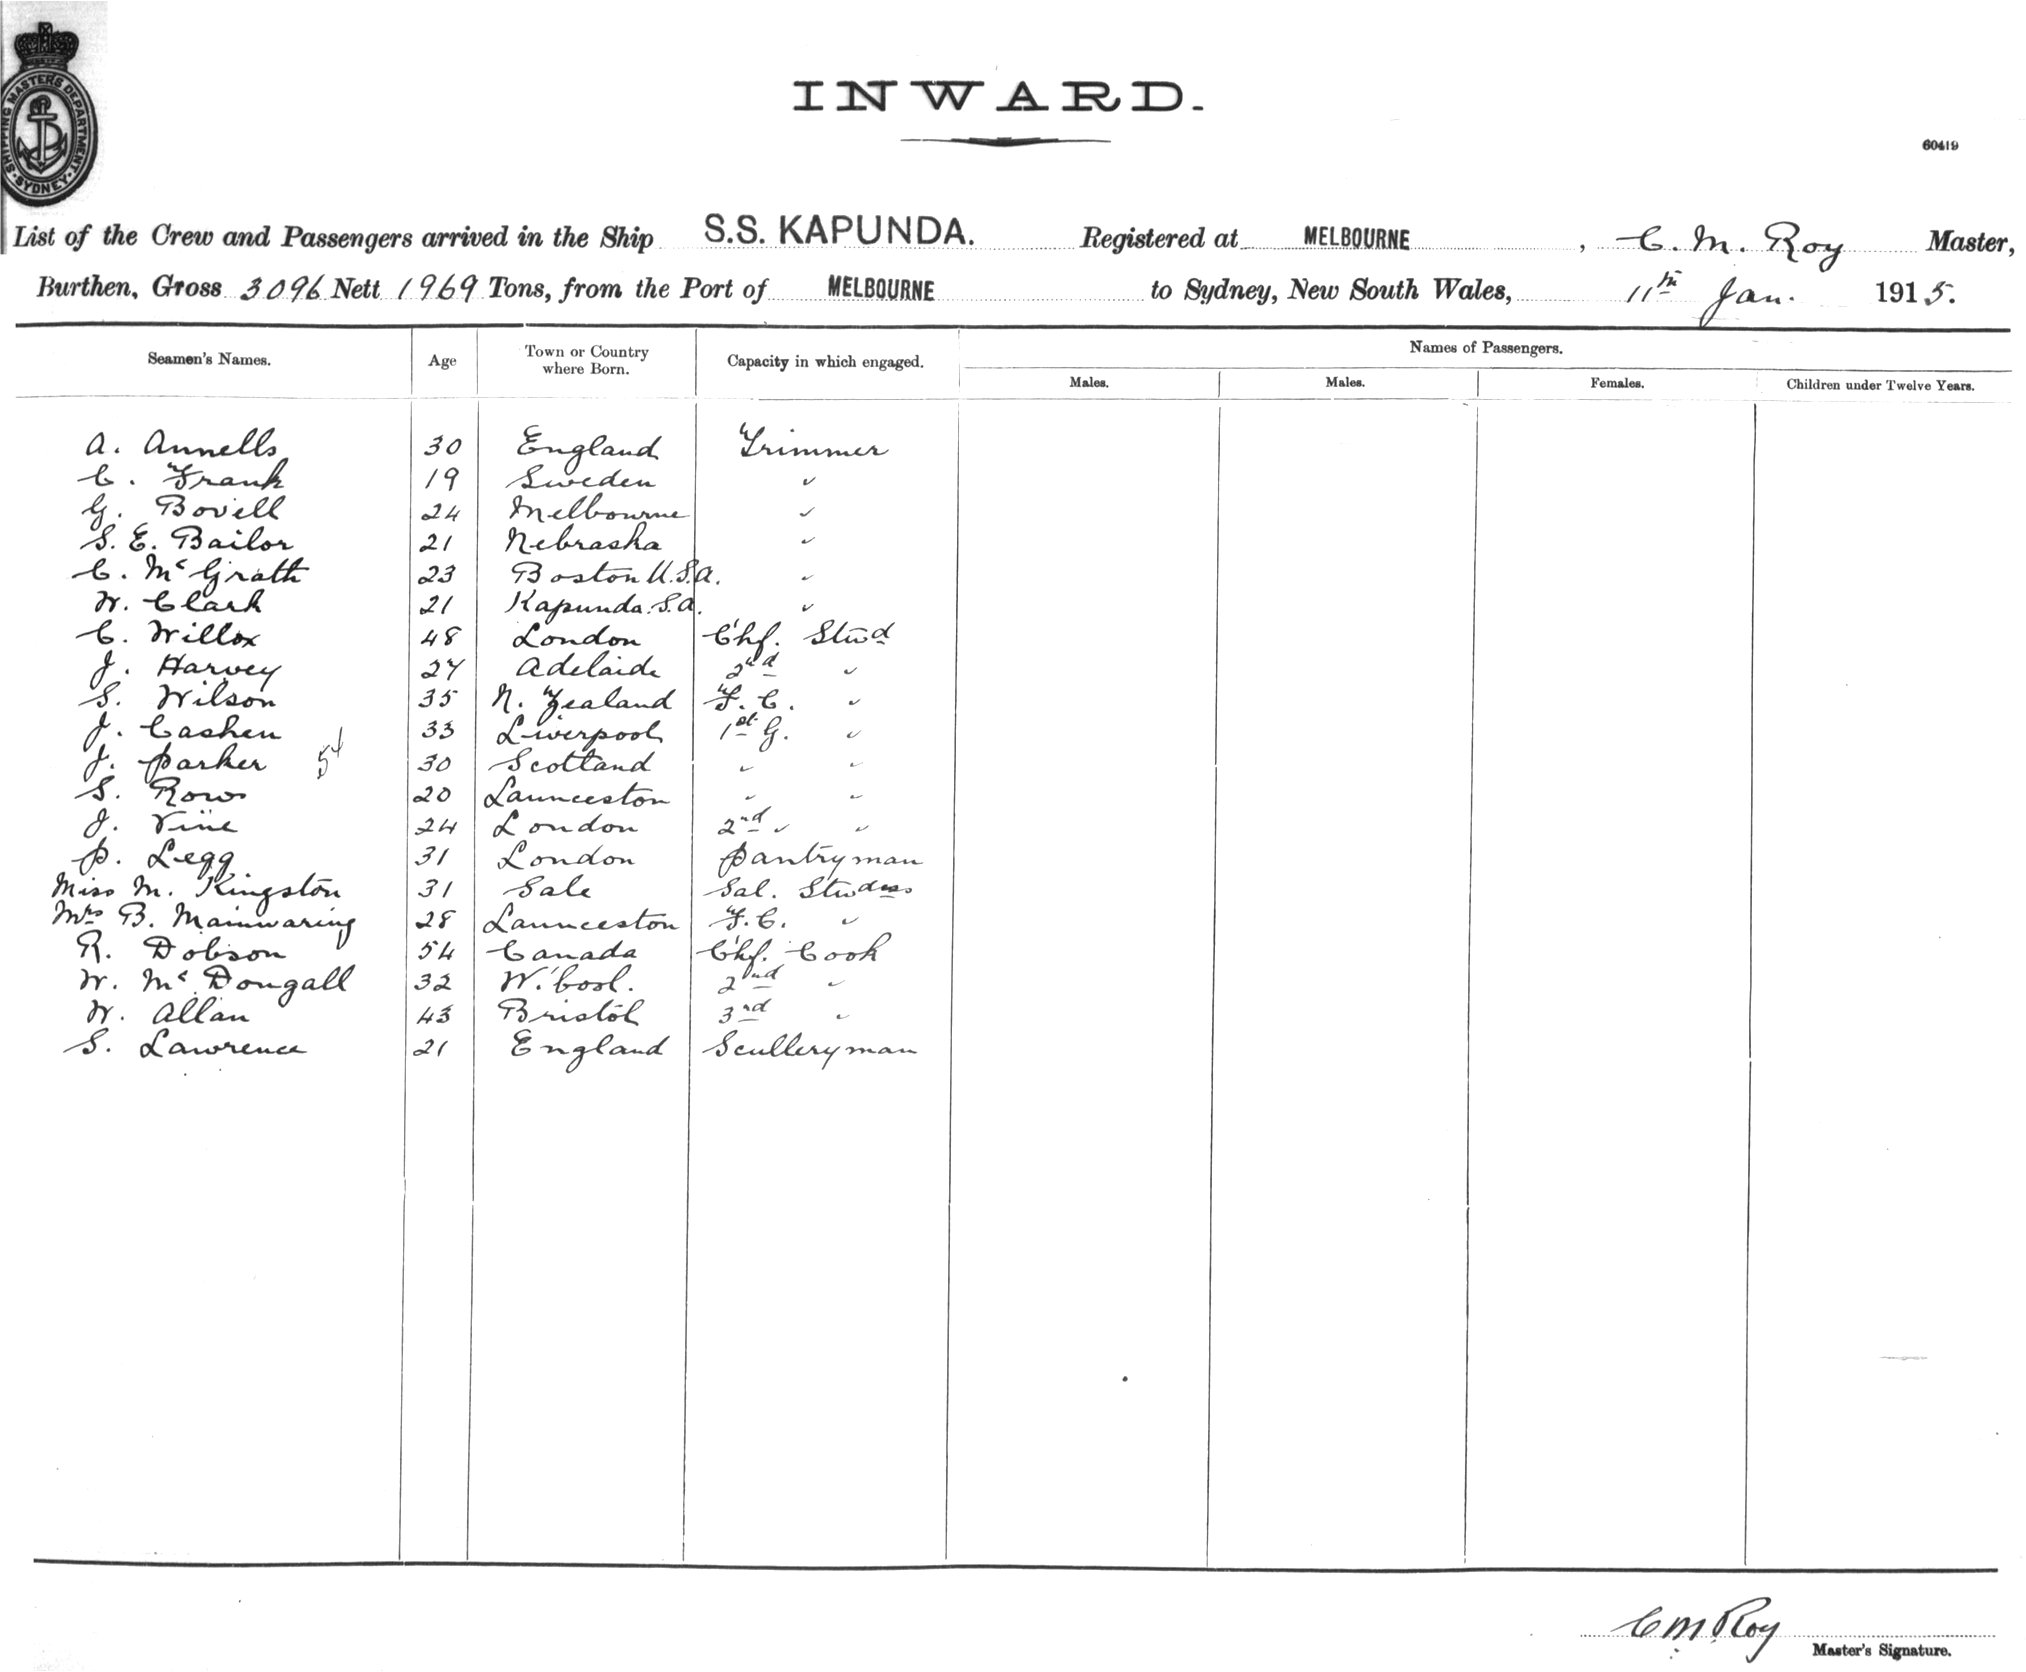 SHIPPING MASTERS DEPARTMENT. SYDNEY.
INWARD.
60419
List of the Crew and Passengers arrived in the Ship S.S. KAPUNDA. Registered at MELBOURNE, C. M. Roy Master,
Burthen, Gross 3096 Nett 1969 Tons, from the Port of MELBOURNE to Sydney, New South Wales, 11th Jan. 1915.
Seamen's Names. Age Town or Country where Born. Capacity in which engaged. Names of Passengers.
Males. Males. Females. Children under Twelve Years.
A. Annells 30 England Trimmer
C. Frank 19 Sweden "
G. Bovell 24 Melbourne "
S. E. Bailor 21 Nebraska "
C. McGrath 23 Boston U.S.A. "
W. Clark 21 Kapunda. S.A. "
C. Willox 48 London Chf. Stwd
J. Harvey 27 Adelaide 2nd "
S. Wilson 35 N. Zealand F. C. "
J. Cashen 33 Liverpool 1st G. "
J. Parker 54 30 Scotland " "
S. Row 20 Launceston " "
J. Vine 24 London 2nd " "
P. Legg 31 London Pantryman
Miss M. Kingston 31 Sale Sal. Stwdess
Mrs B. Mainwaring 28 Launceston F. C. "
R. Dobson 54 Canada Chf. Cook
W. McDougall 32 W.'bool. 2nd "
W. Allan 43 Bristol 3rd "
S. Lawrence 21 England Sculleryman
C M Roy
Master's Signature.